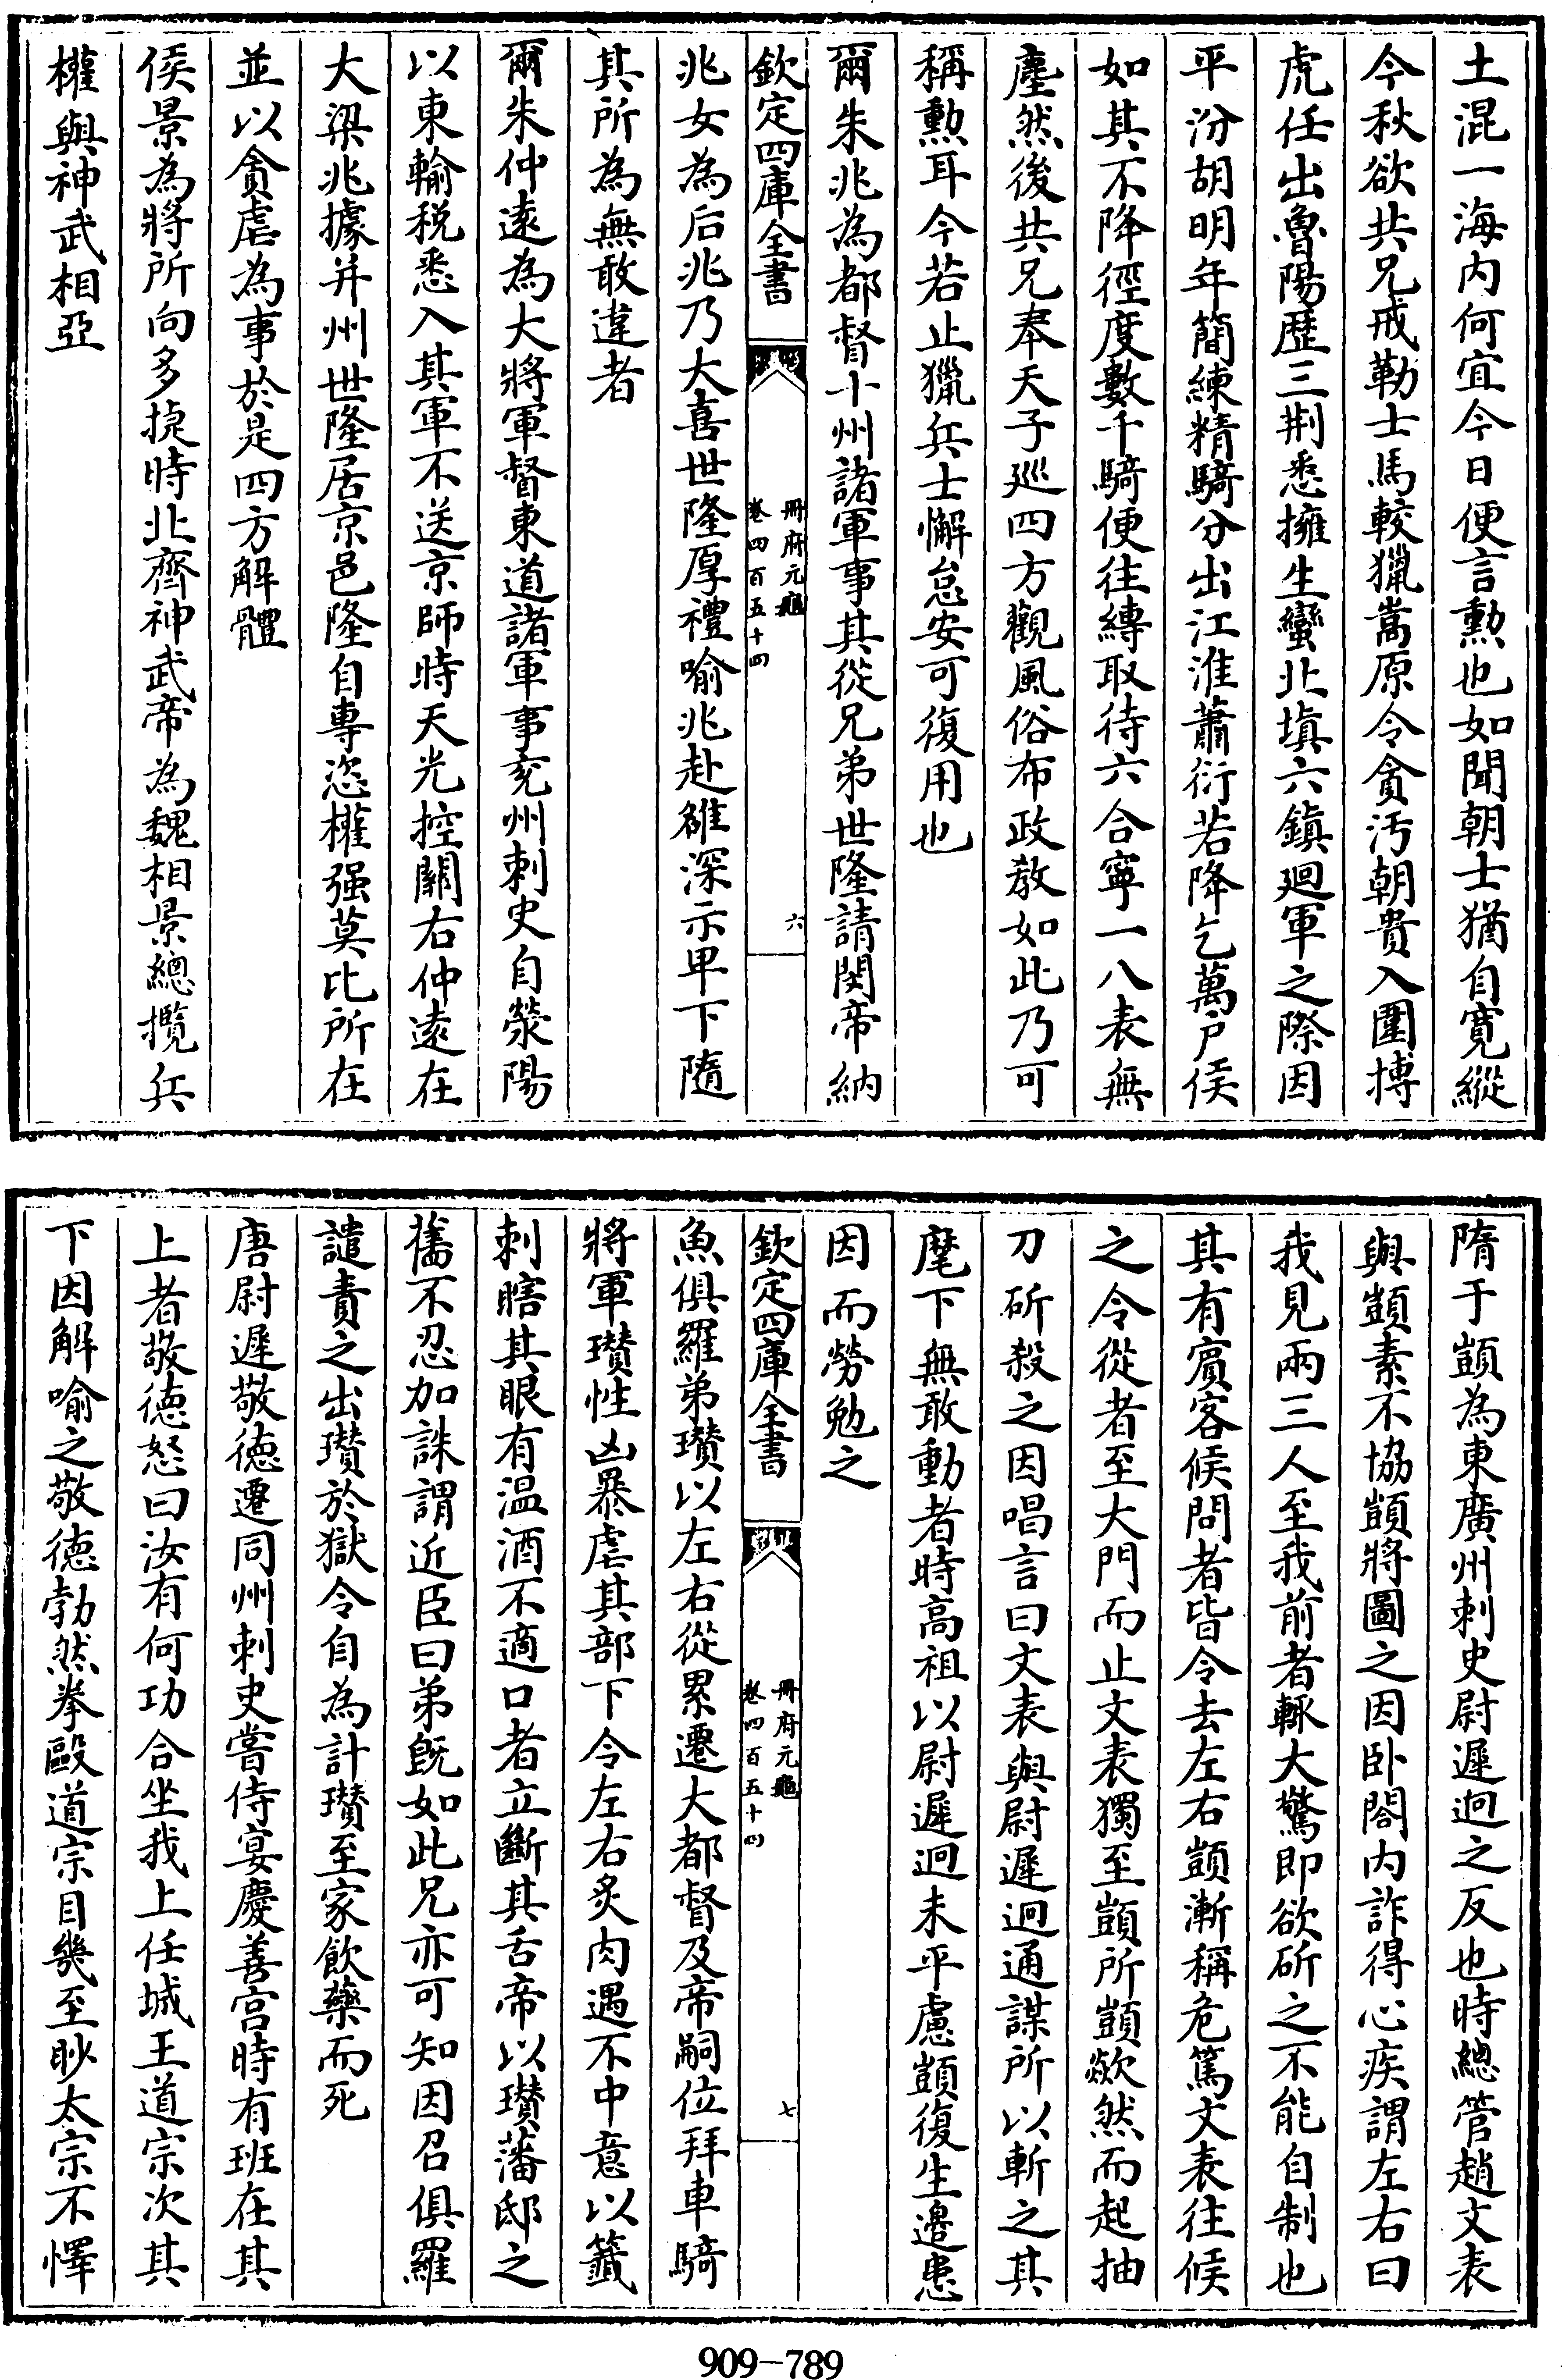 土混一海内何宜今日便言勲也如聞朝士猶自寛縱
今秋欲共兄戒勒士馬較獵嵩原令貪汚朝貴入圍搏
虎任出魯陽歴三荆悉擁生蠻北填六鎮廻軍之際因
平汾胡明年簡練精騎分出江淮蕭衍若降乞萬户侯
如其不降徑度數千騎便往縳取待六合寧一八表無
塵然後共兄奉天子廵四方觀風俗布政教如此乃可
稱勲耳今若止獵兵士懈怠安可復用也
爾朱兆為都督十州諸軍事其從兄弟世隆請閔帝納
欽定四庫全書
冊府元龜
卷四百五十四
六
兆女為后兆乃大喜世隆厚禮喻兆赴雒深示卑下隨
其所為無敢違者
爾朱仲遠為大將軍督東道諸軍事兖州刺史自滎陽
以東輸税悉入其軍不送京師時天光控關右仲遠在
大梁兆據并州世隆居京邑隆自專恣權强莫比所在
並以貪虐為事於是四方解體
侯景為將所向多捷時北齊神武帝為魏相景總攬兵
權與神武相亞
隋于顗為東廣州刺史尉遲迥之反也時總管趙文表
與顗素不協顗將圖之因卧閤内詐得心疾謂左右曰
我見兩三人至我前者輙大驚即欲斫之不能自制也
其有賓客候問者皆令去左右顗漸稱危篤文表往候
之令從者至大門而止文表獨至顗所顗欻然而起抽
刀斫殺之因唱言曰文表與尉遲迥通謀所以斬之其
麾下無敢動者時高祖以尉遲迥未平慮顗復生邊患
因而勞勉之
欽定四庫全書
冊府元龜
卷四百五十四
七
魚俱羅弟瓚以左右從累遷大都督及帝嗣位拜車騎
將軍瓚性凶暴虐其部下令左右炙肉遇不中意以籤
刺瞎其眼有温酒不適口者立斷其舌帝以瓚藩邸之
舊不忍加誅謂近臣曰弟既如此兄亦可知因召俱羅
譴責之出瓚於獄令自為計瓚至家飲藥而死
唐尉遲敬德遷同州刺史嘗侍宴慶善宮時有班在其
上者敬德怒曰汝有何功合坐我上任城王道宗次其
下因解喻之敬德勃然拳毆道宗目幾至眇太宗不懌
909-789